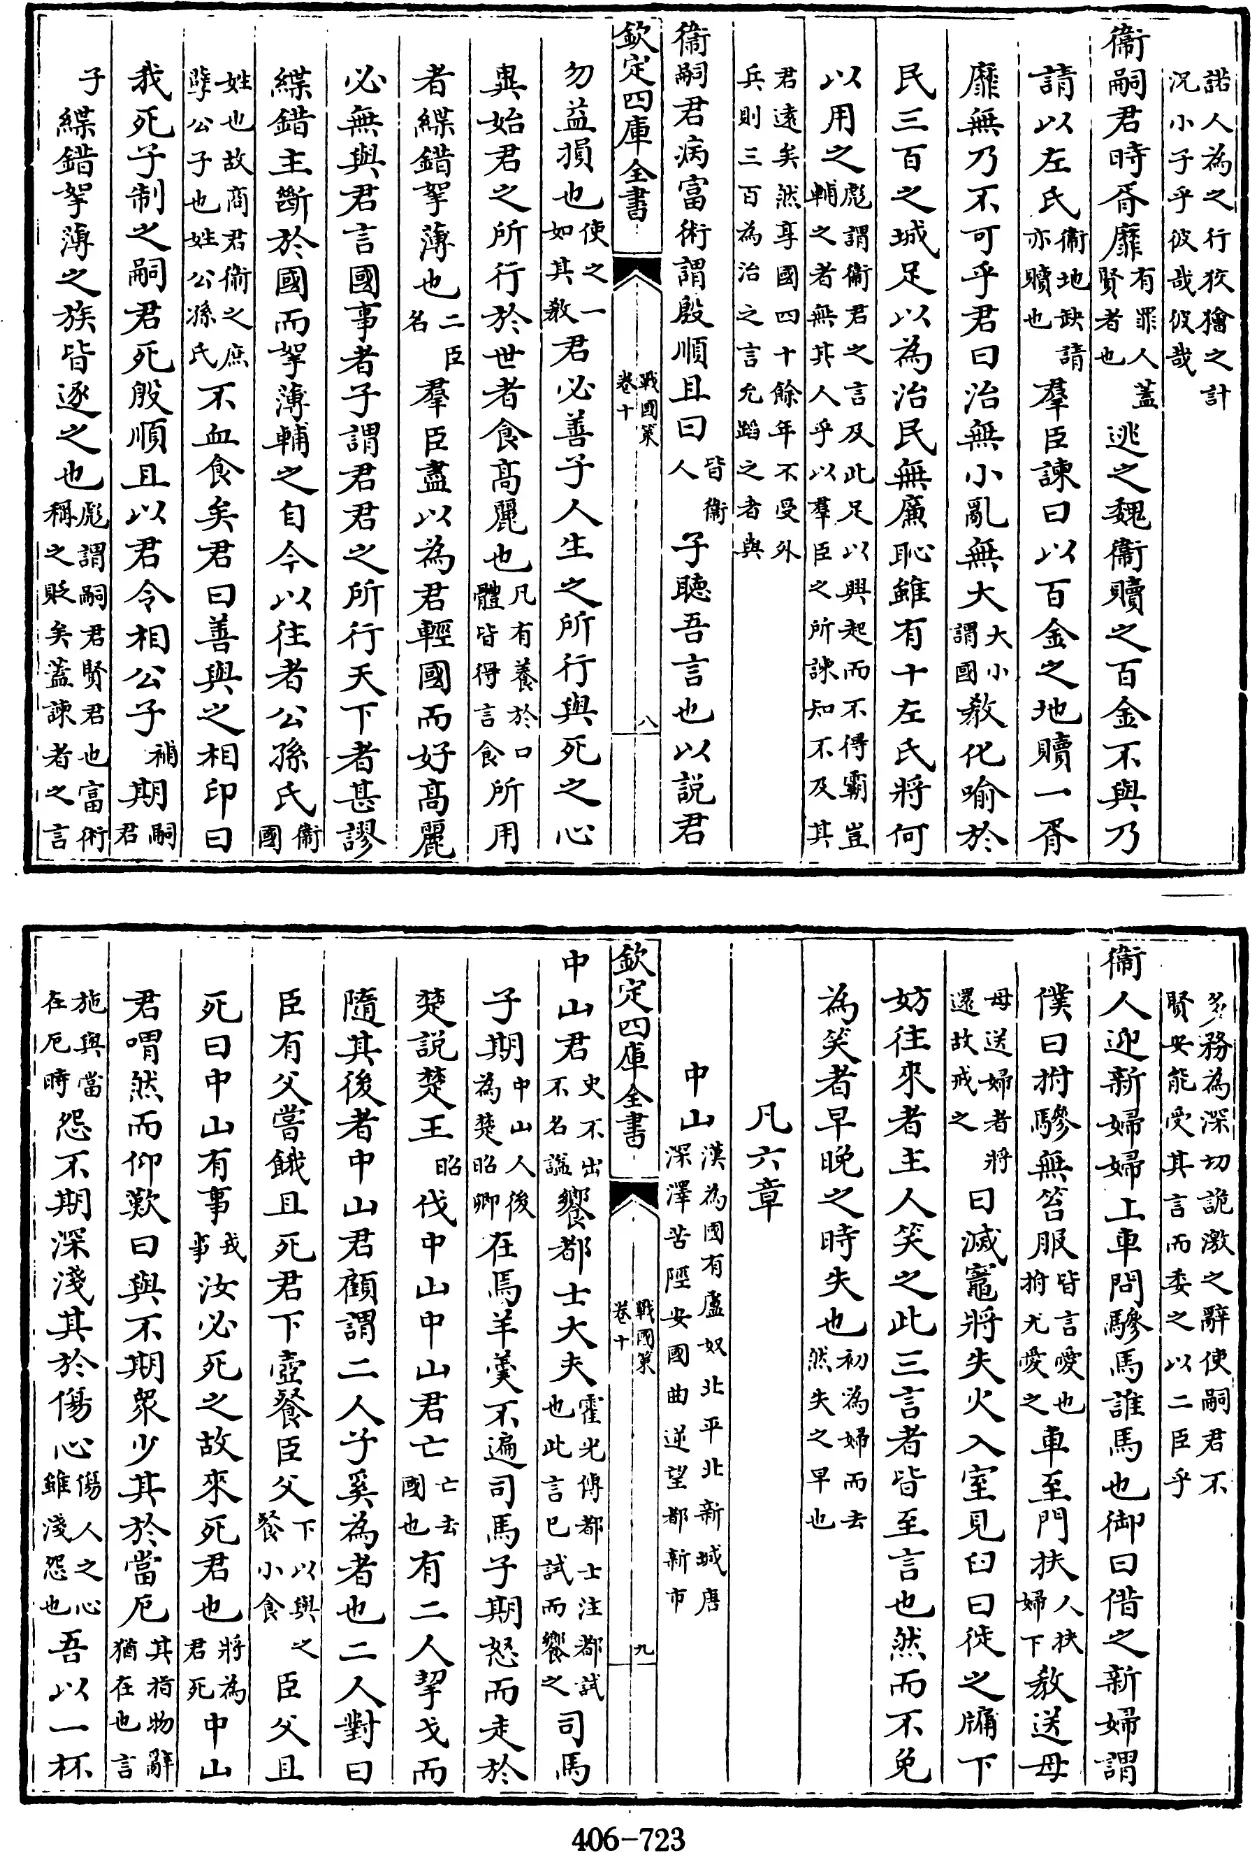 諾人為之行狡獪之計
況小子乎彼哉彼哉
衞嗣君時胥靡有罪人蓋賢者也逃之魏衞贖之百金不與乃
請以左氏衞地缺請亦贖也羣臣諫曰以百金之地贖一胥
靡無乃不可乎君曰治無小亂無大大小謂國教化喻於
民三百之城足以為治民無廉恥雖有十左氏將何
以用之彪謂衞君之言及此足以興起而不得霸豈輔之者無其人乎以羣臣之所諫知不及其
君遠矣然享國四十餘年不受外兵則三百為治之言允蹈之者與
衞嗣君病富術謂殷順且曰皆衞人子聽吾言也以説君
欽定四庫全書
戰國策
卷十
八
勿益損也使之一如其教君必善子人生之所行與死之心
異始君之所行於世者食高麗也凡有養於口體皆得言食所用
者緤錯挐薄也二臣名羣臣盡以為君輕國而好高麗
必無與君言國事者子謂君君之所行天下者甚謬
緤錯主斷於國而挐薄輔之自今以往者公孫氏衞國
姓也故商君衞之庶孽公子也姓公孫氏不血食矣君曰善與之相印曰
我死子制之嗣君死殷順且以君令相公子補期嗣君
子緤錯挐薄之族皆逐之也彪謂嗣君賢君也富術稱之貶矣蓋諫者之言
多務為深切詭激之辭使嗣君不
賢安能受其言而委之以二臣乎
衞人迎新婦婦上車問驂馬誰馬也御曰借之新婦謂
僕曰拊驂無笞服皆言愛也拊尤愛之車至門扶人扶婦下教送母
母送婦者將還故戒之曰滅竈將失火入室見臼曰徙之牖下
妨往來者主人笑之此三言者皆至言也然而不免
為笑者早晚之時失也初為婦而去然失之早也
凡六章
中山漢為國有盧奴北平北新城唐深澤苦陘安國曲逆望都新市
欽定四庫全書
戰國策
卷十
九
中山君史不出不名諡饗都士大夫霍光傅都士注都試也此言已試而饗之司馬
子期中山人後為楚昭卿在焉羊羹不遍司馬子期怒而走於
楚説楚王昭伐中山中山君亡亡去國也有二人挈戈而
隨其後者中山君顧謂二人子奚為者也二人對曰
臣有父嘗餓且死君下壺餐臣父下以與之餐小食臣父且
死曰中山有事戎事汝必死之故來死君也將為君死中山
君喟然而仰歎曰與不期衆少其於當厄其指物辭猶在也言
施與當在厄時怨不期深淺其於傷心傷人之心雖淺怨也吾以一杯
406-723